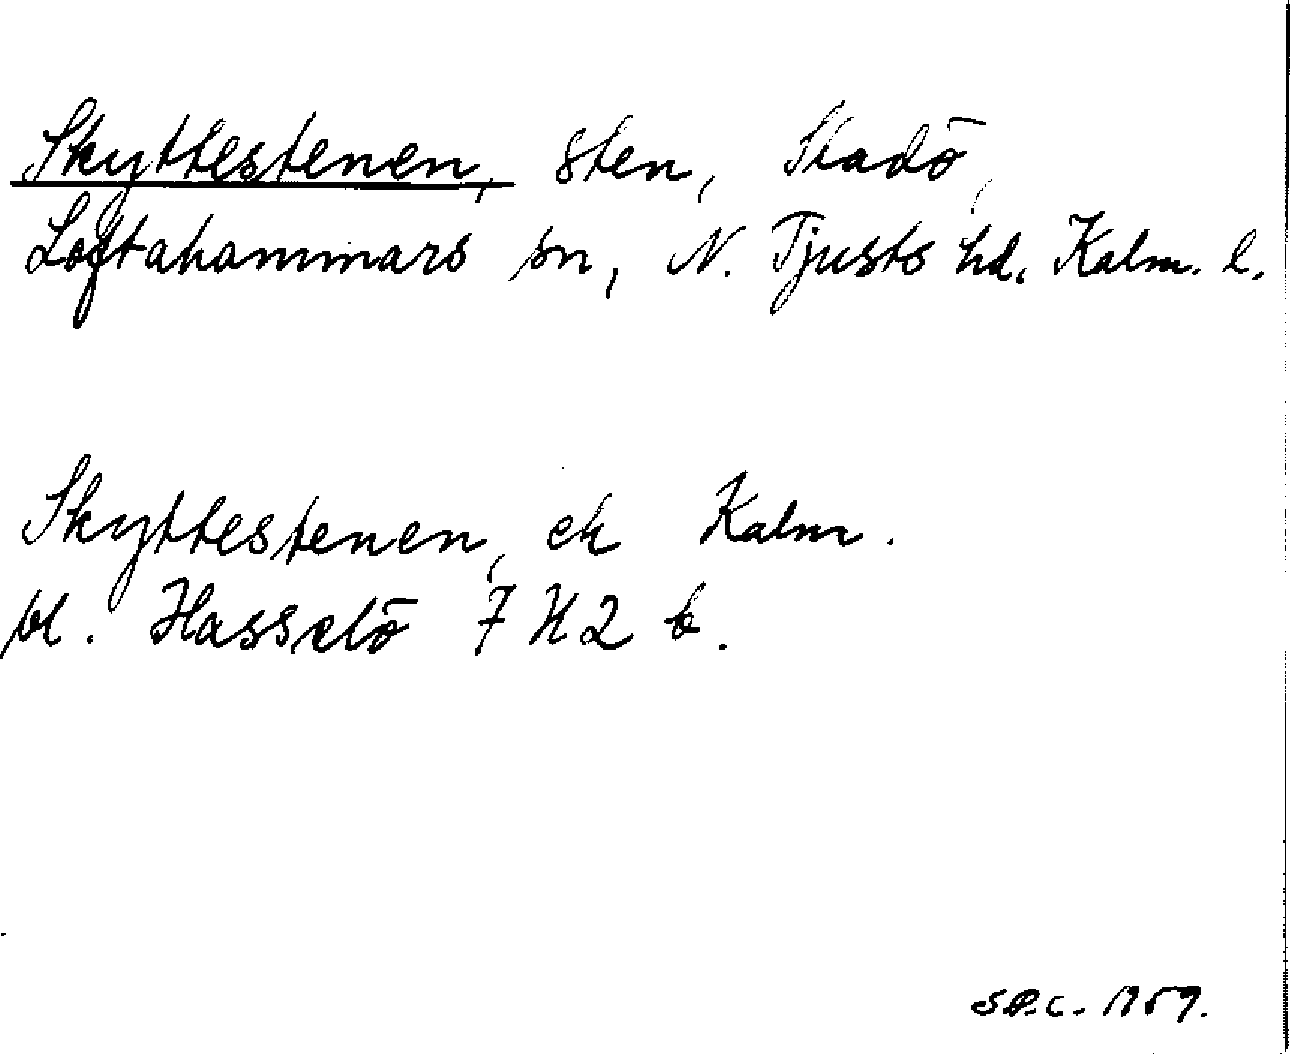 Skyttestenen, sten, Stadö,
Loftahammars sn, N. Tjusts hd. Kalm. l.
Skyttestenen, ek Kalm.
bl. Hasselö 7 H 2 b.
1959.